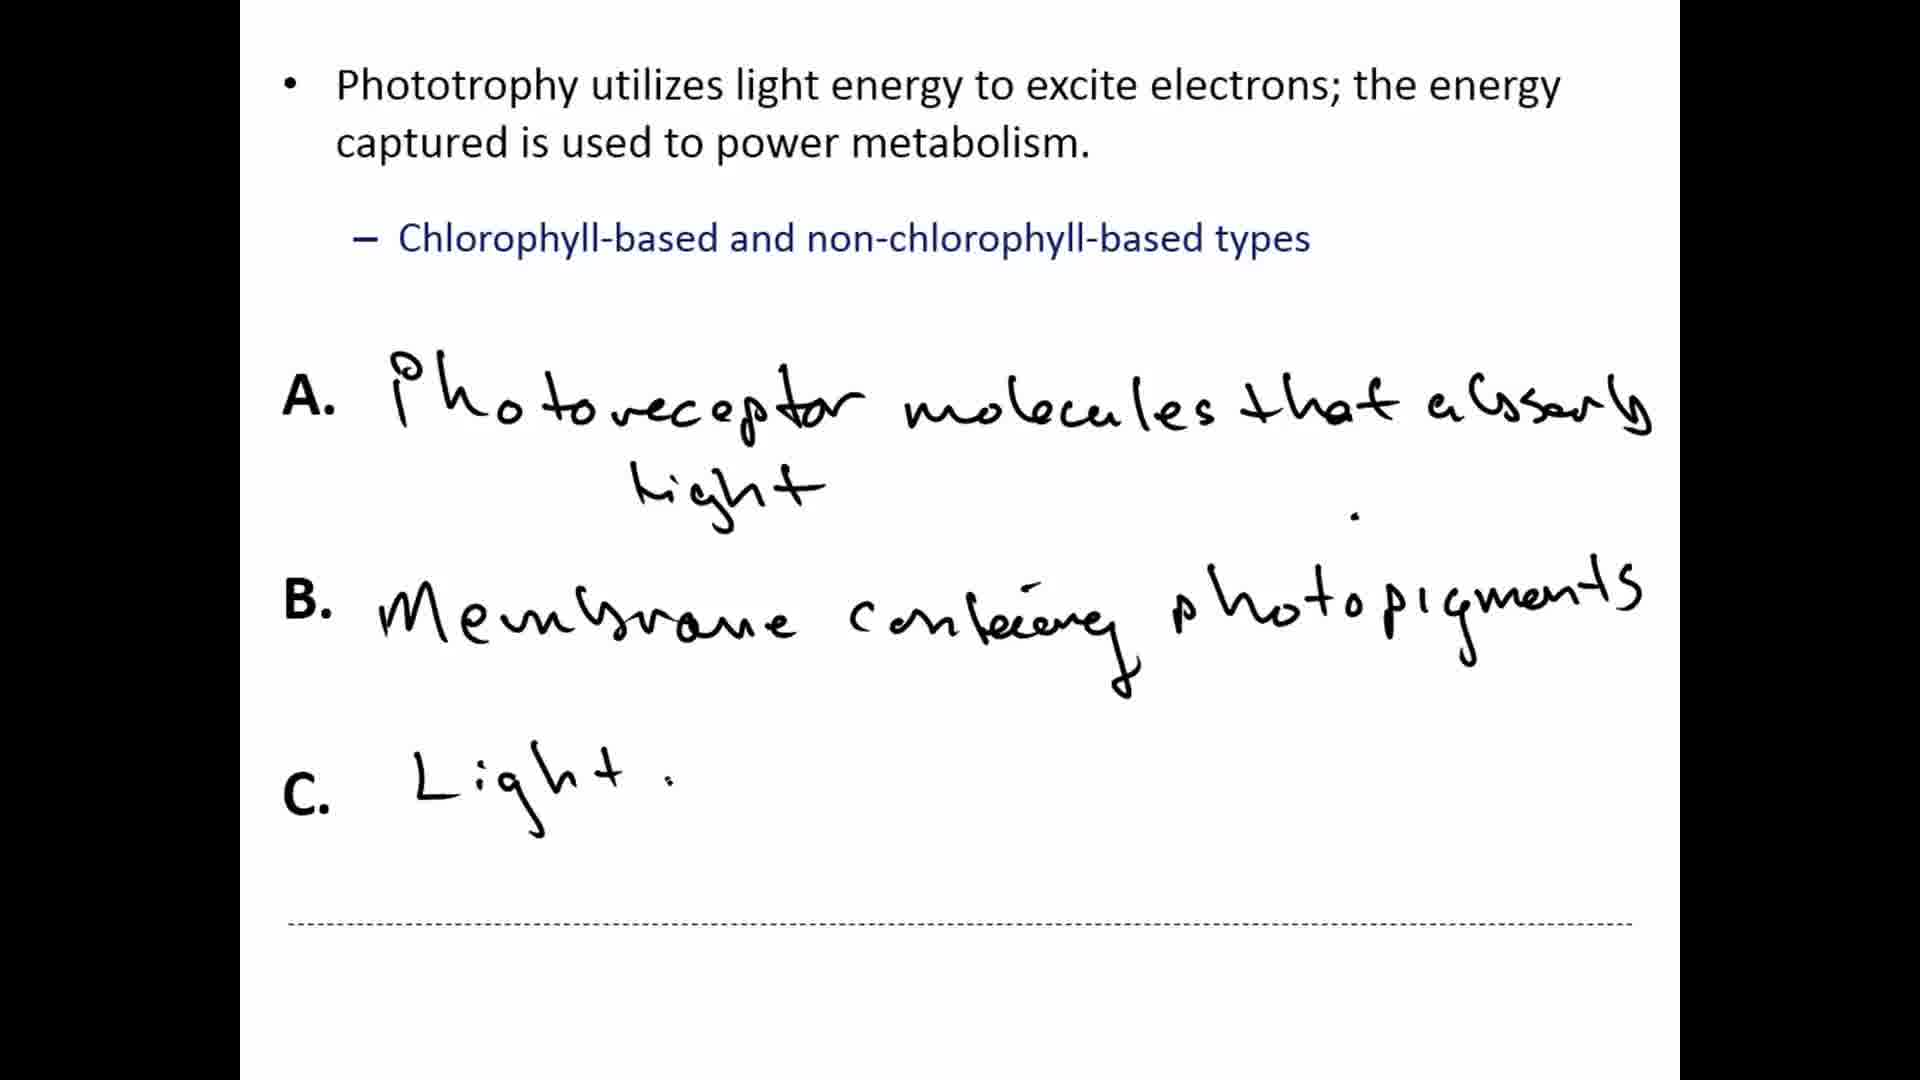 • Phototrophy utilizes light energy to excite electrons; the energy
captured is used to power metabolism.
– Chlorophyll-based and non-chlorophyll-based types
A. Photoreceptor molecules that absorb
light
B. Membrane containing photopigments
C. Light.